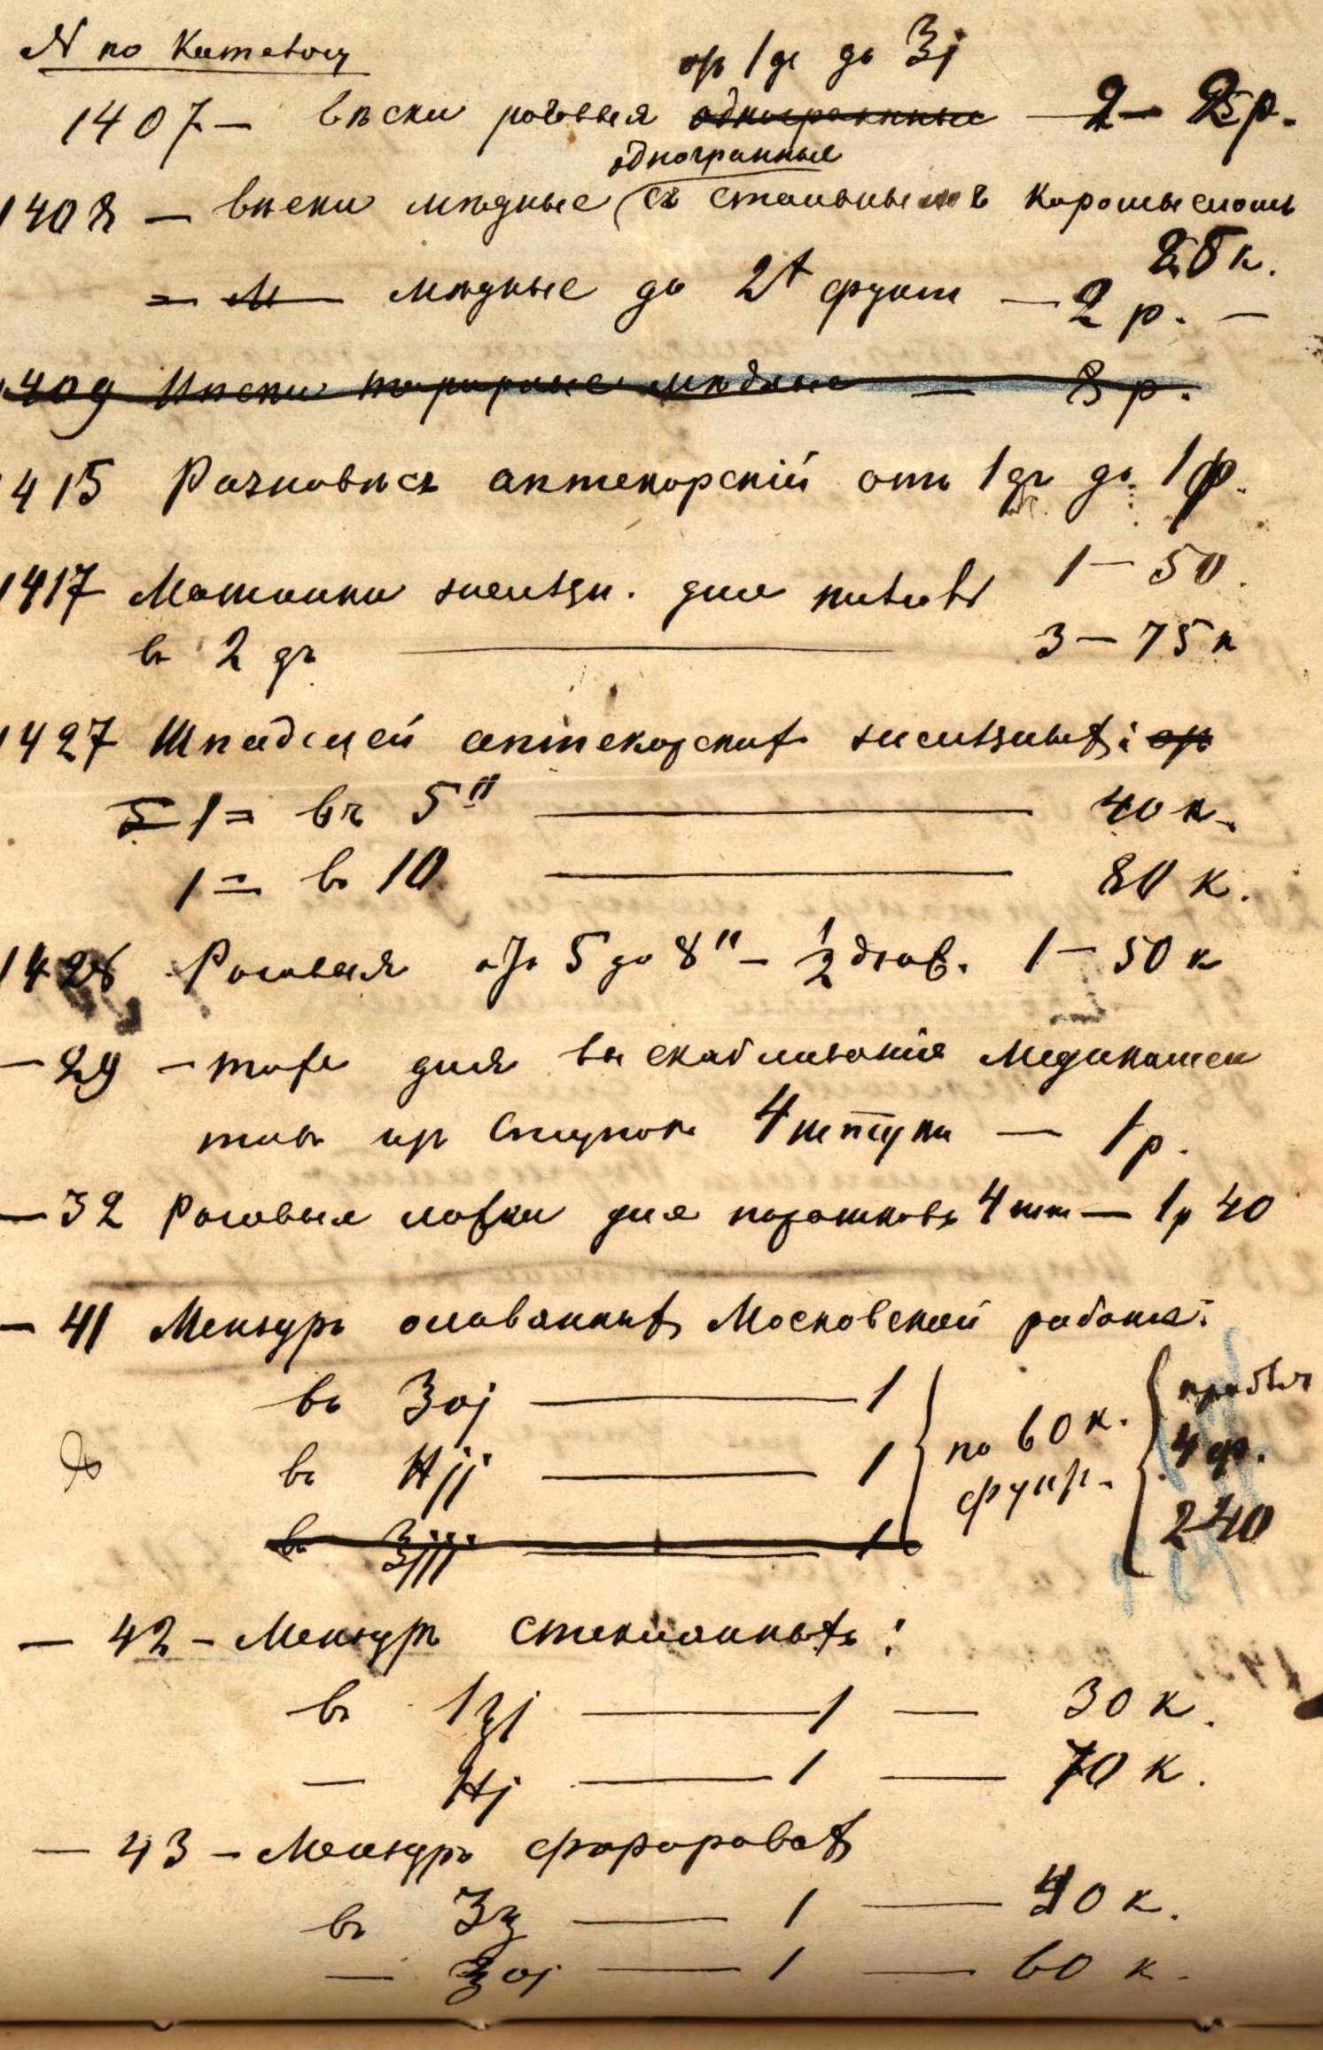 N по Каталогу
отъ 1 до ʒj
1407 — Вѣски роговыя ~~одногранныя~~ — 2 — 25 р.
одногранныя
1408 — Вѣски мѣдные (съ стальнымъ коромысломъ
25 к.
мѣдные до 2х фунт — 2 р. —
1409 Вѣски тарирные мѣдные — 8 р.
1415 Разновѣсъ аптекарскій отъ 1 гр до 1 ф.
1417 Машинки желѣзн. для пилюль 1 — 50.
въ 2 гр — 3 — 75 к
1427 Шпаделей аптекарскихъ желѣзныхъ:
1 = въ 5" — 40 к.
1 = въ 10 — 80 к.
1428 Роговыя отъ 5 до 8" — ½ дюж. 1 — 50 к
— 29 — тоже для выскабливанія медикамен
товъ изъ ступокъ 4 штуки — 1 р.
— 32 Роговыя ложки для порошковъ 4 шт — 1 р 40
— 41 Мензуръ оловянныхъ Московской работы:
въ ʒvj — 1
въ ℔jj — 1
по 60 к.
фунт.
4 ф.
2 40
въ ʒjjj — 1
— 42 — Мензуръ стеклянныхъ:
въ 1ʒj — 1 — 30 к.
— ℔j — 1 — 70 к.
— 43 — Мензуръ фарфоровыхъ
въ — 1 — 40 к.
— ʒvj — 1 — 60 к.